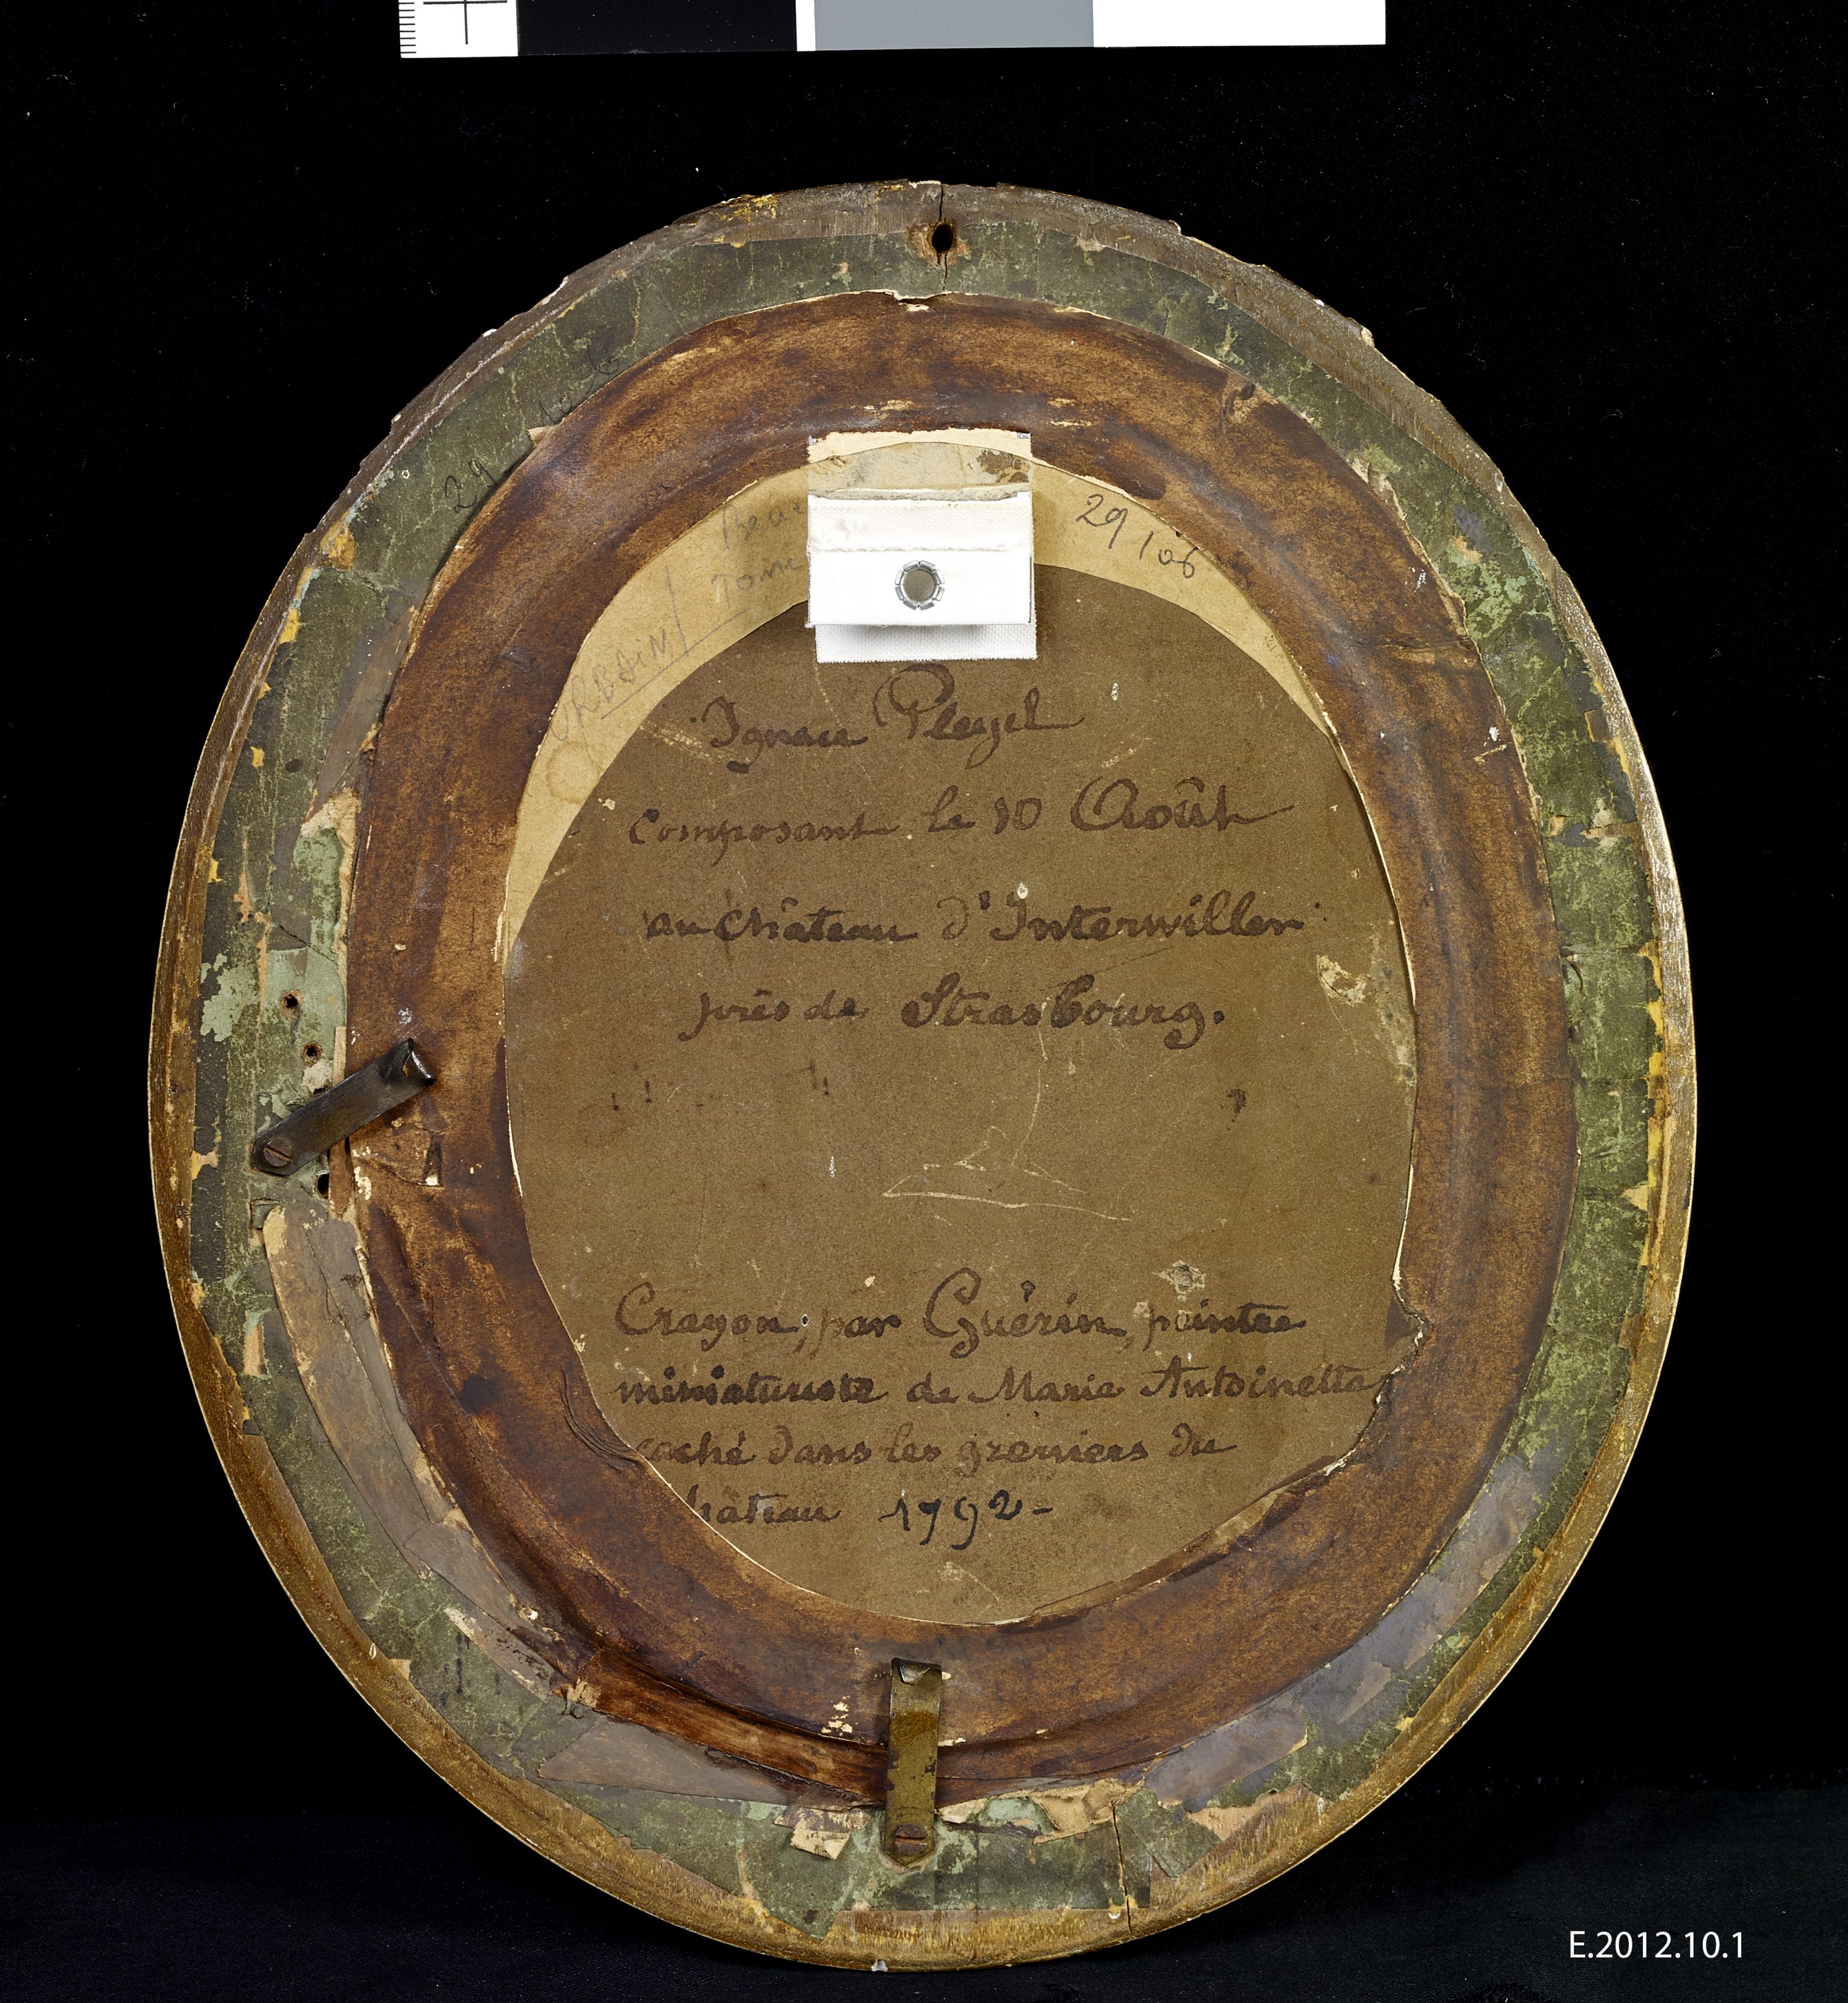 29 106
Tome
URBAIN
Ignace Pleyel
composant le 10 Août
au château d'Interwiller
près de Strasbourg.
Crayon, par Guérin, peintre
miniaturiste de Marie Antoinette
caché dans les greniers du
hâteau 1792-
E.2012.10.1